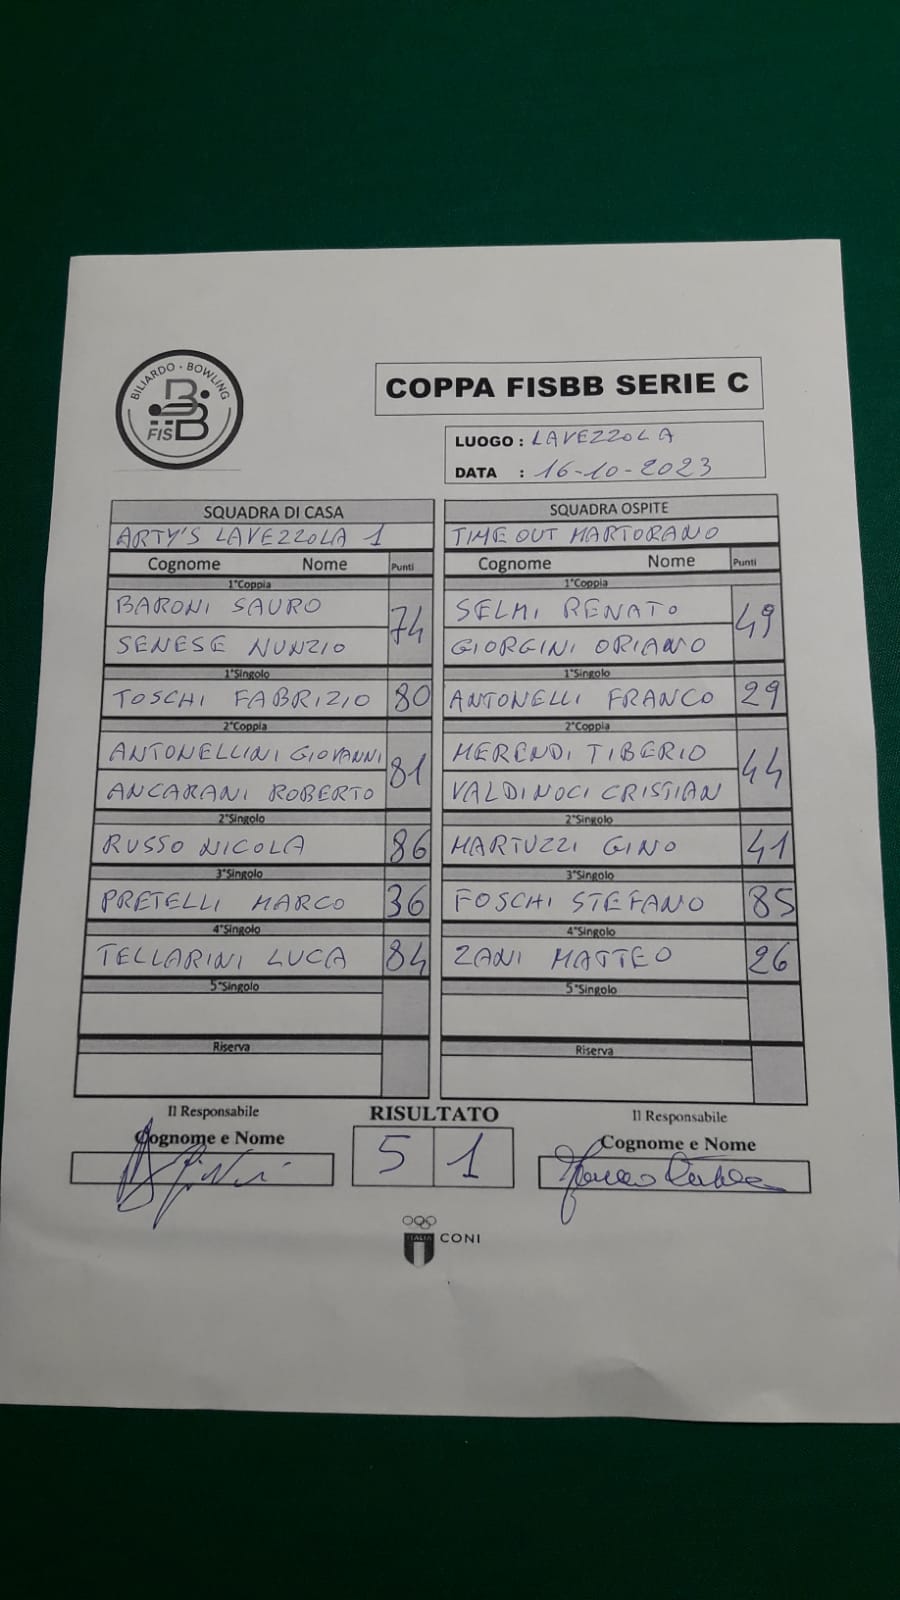 BILIARDO - BOWLING
FISBB
COPPA FISBB SERIE C
LUOGO : LAVEZZOLA
DATA : 16-10-2023
SQUADRA DI CASA
ARTY'S LAVEZZOLA 1
Cognome Nome Punti
1°Coppia
BARONI SAURO
SENESE NUNZIO
74
1°Singolo
TOSCHI FABRIZIO 80
2°Coppia
ANTONELLINI GIOVANNI
ANCARANI ROBERTO
81
2°Singolo
RUSSO NICOLA 86
3°Singolo
PRETELLI MARCO 36
4°Singolo
TELLARINI LUCA 84
5°Singolo
Riserva
SQUADRA OSPITE
TIME OUT MARTORANO
Cognome Nome Punti
1°Coppia
SELMI RENATO
GIORGINI ORIANO
49
1°Singolo
ANTONELLI FRANCO 29
2°Coppia
MERENDI TIBERIO
VALDINOCI CRISTIAN
44
2°Singolo
MARTUZZI GINO 41
3°Singolo
FOSCHI STEFANO 85
4°Singolo
ZANI MATTEO 26
5°Singolo
Riserva
Il Responsabile
Cognome e Nome
RISULTATO
5 1
Il Responsabile
Cognome e Nome
ITALIA
CONI